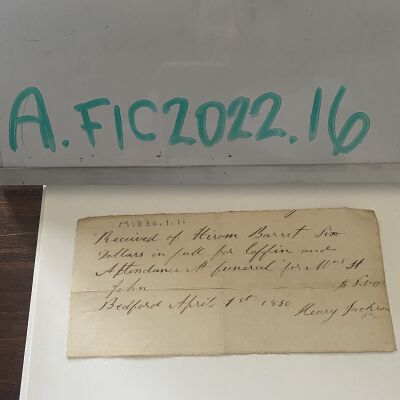 A.FIC2022.16
M1830.1.1.
Received of Hiram Barret Six
Dollars in full for Coffin and
Attendance At funeral for Mrs St
John
Bedford April 1st 1830
Henry Jackson